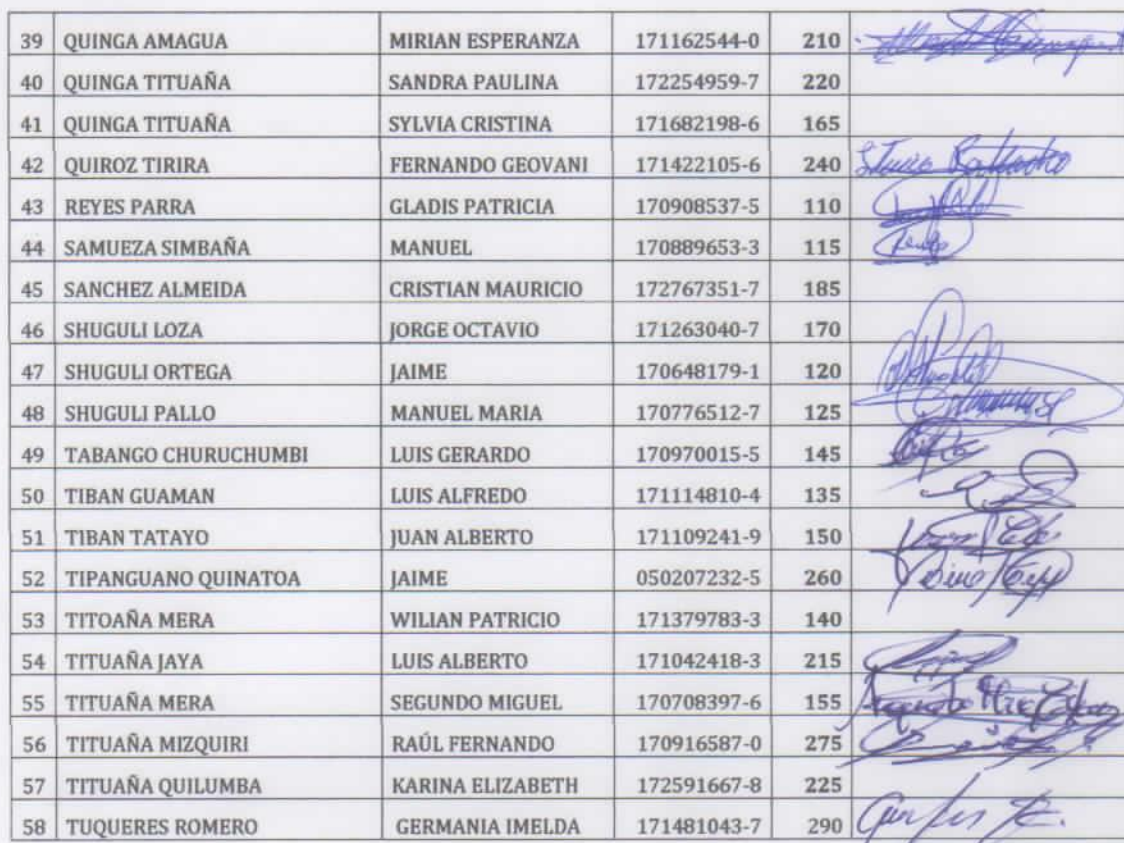 39 QUINGA AMAGUA MIRIAN ESPERANZA 171162544-0 210
40 QUINGA TITUAÑA SANDRA PAULINA 172254959-7 220
41 QUINGA TITUAÑA SYLVIA CRISTINA 171682198-6 165
42 QUIROZ TIRIRA FERNANDO GEOVANI 171422105-6 240
43 REYES PARRA GLADIS PATRICIA 170908537-5 110
44 SAMUEZA SIMBAÑA MANUEL 170889653-3 115
45 SANCHEZ ALMEIDA CRISTIAN MAURICIO 172767351-7 185
46 SHUGULI LOZA JORGE OCTAVIO 171263040-7 170
47 SHUGULI ORTEGA JAIME 170648179-1 120
48 SHUGULI PALLO MANUEL MARIA 170776512-7 125
49 TABANGO CHURUCHUMBI LUIS GERARDO 170970015-5 145
50 TIBAN GUAMAN LUIS ALFREDO 171114810-4 135
51 TIBAN TATAYO JUAN ALBERTO 171109241-9 150
52 TIPANGUANO QUINATOA JAIME 050207232-5 260
53 TITOAÑA MERA WILIAN PATRICIO 171379783-3 140
54 TITUAÑA JAYA LUIS ALBERTO 171042418-3 215
55 TITUAÑA MERA SEGUNDO MIGUEL 170708397-6 155
56 TITUAÑA MIZQUIRI RAÚL FERNANDO 170916587-0 275
57 TITUAÑA QUILUMBA KARINA ELIZABETH 172591667-8 225
58 TUQUERES ROMERO GERMANIA IMELDA 171481043-7 290